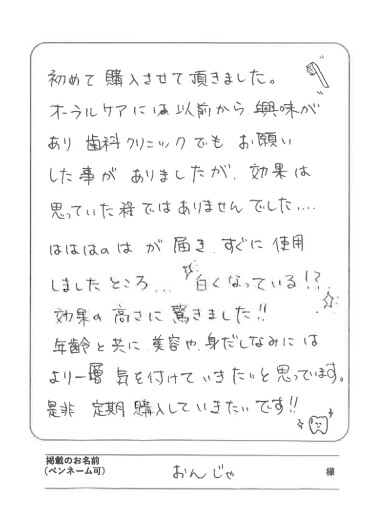 初めて購入させて頂きました。
オーラルケアには以前から興味が
あり歯科クリニックでもお願い
した事がありましたが、効果は
思っていた程ではありませんでした....
はははのはが届き、すぐに使用
しましたところ... 白くなっている!?
効果の高さに驚きました!!
年齢と共に、美容や、身だしなみには
より一層気を付けていきたいと思っています。
是非 定期購入していきたいです!!
掲載のお名前
(ペンネーム可)
おんじゃ 様